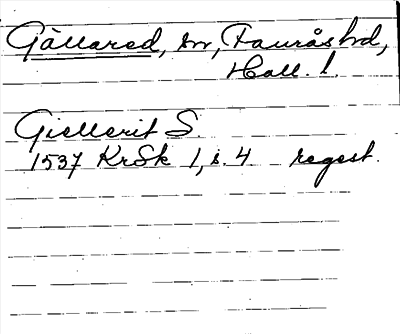 Gällared, sn, Faurås hd,
Hall. l.
Giellerit S.
1537 KrSk 1, s. 4 regest.